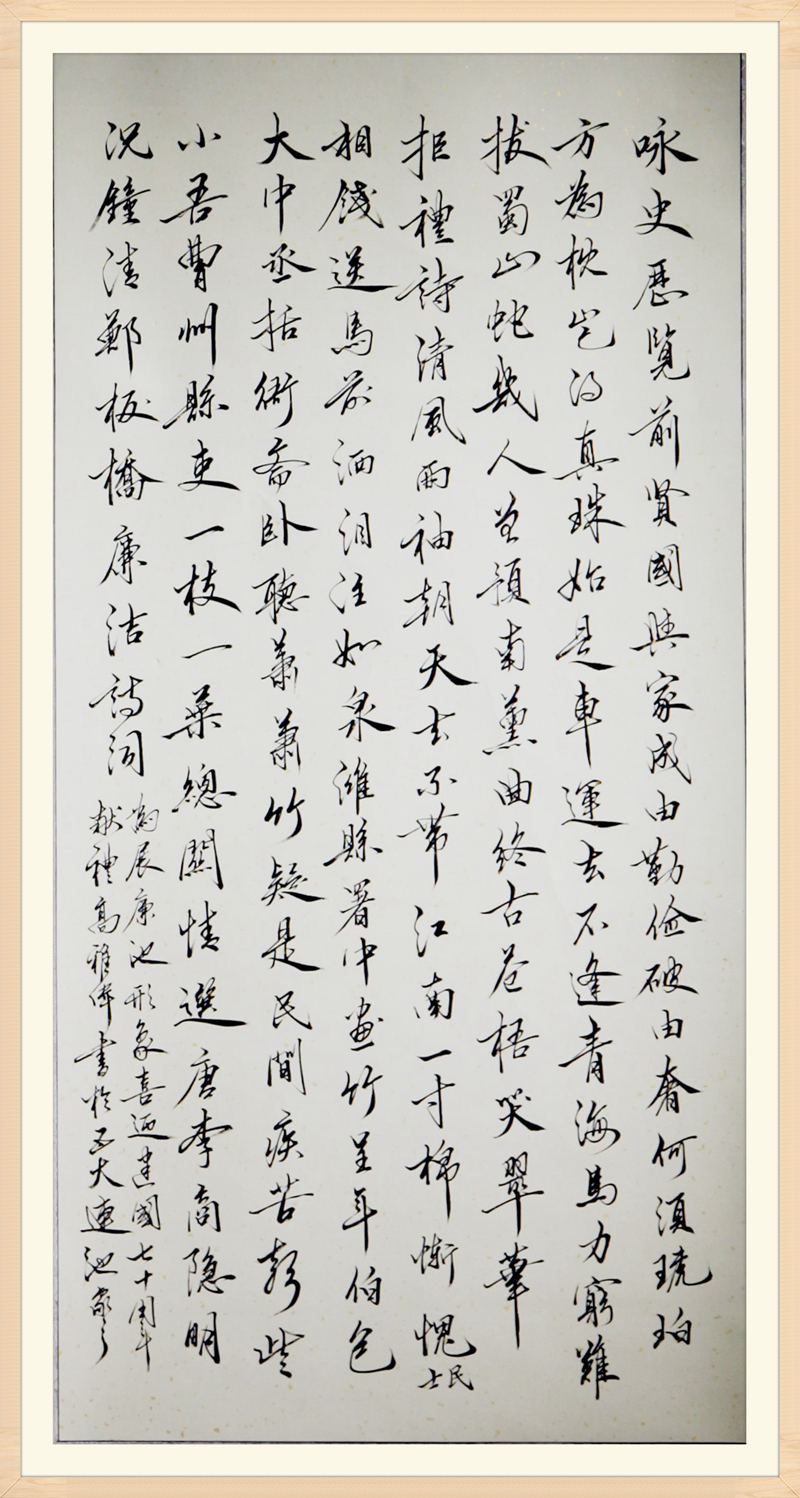 咏史歷覽前賢國與家成由勤儉破由奢何須琥珀
方為枕豈得真珠始是車運去不逢青海馬力窮難
拔蜀山蛇幾人曾預南薰曲終古蒼梧哭翠華
拒禮詩清風兩袖朝天去不帶江南一寸棉慚愧士民
相餞送馬前洒泪注如泉濰縣署中畫竹呈年伯包
大中丞括衙斋卧聽萧萧竹疑是民間疾苦聲些
小吾曹州縣吏一枝一葉總關情選唐李商隐明
况鐘清鄭板橋廉洁詩詞
為展廉池形象喜迎建國七十周年
献禮高雅偉書於五大連池